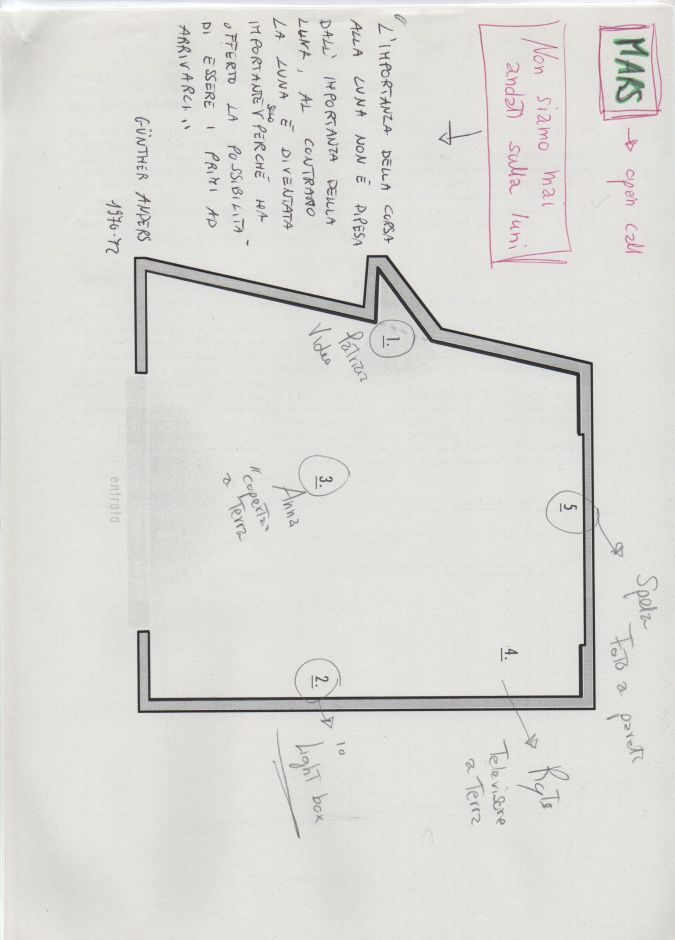 MARS → open call
Non siamo mai
andati sulla luna
"L'IMPORTANZA DELLA CORSA
ALLA LUNA NON È DIPESA
DALL'IMPORTANZA DELLA
LUNA, AL CONTRARIO
LA LUNA È DIVENTATA
IMPORTANTE SOLO PERCHÉ HA
OFFERTO LA POSSIBILITA-
DI ESSERE I PRIMI AD
ARRIVARCI."
GÜNTHER ANDERS
1970-72
1.
Patrizia
Video
5
Spela
Foto a parete
3.
Anna
"coperta"
a Terra
entrata
4.
Televisore
a Terra
2.
io
Light box